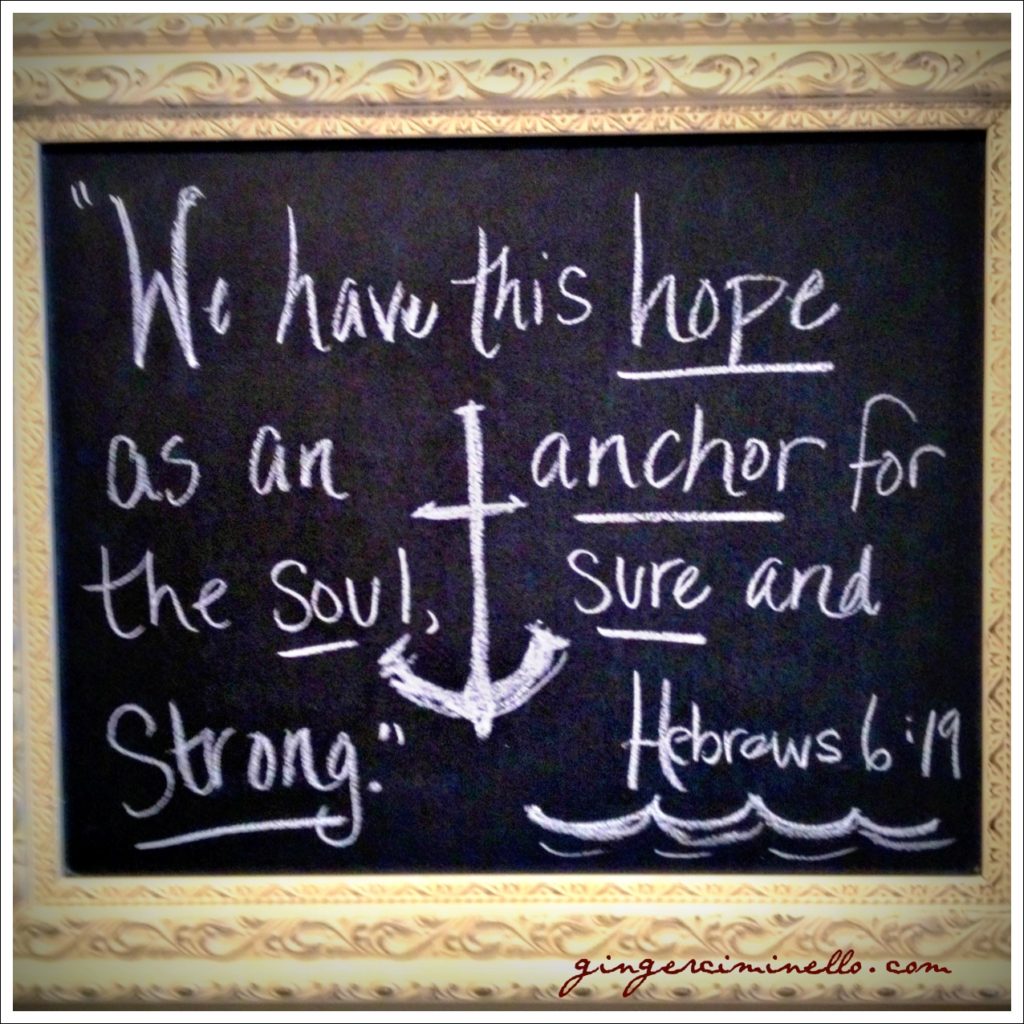 "We have this hope
as an anchor for
the soul, sure and
Strong."
Hebrews 6:19
gingerciminello.com